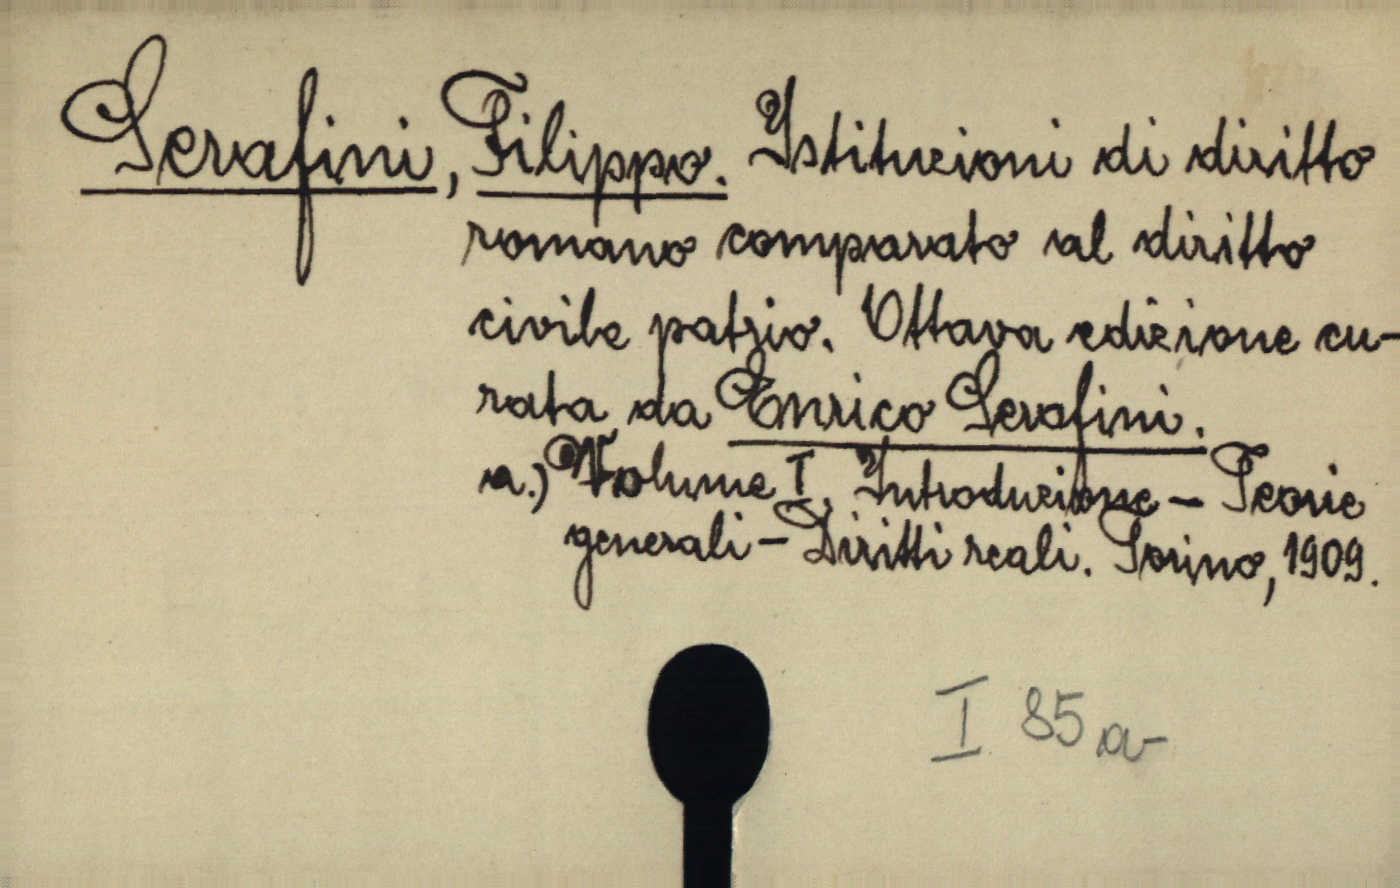 Serafini, Filippo. Istituzioni di diritto
romano comparato al diritto
civile patrio. Ottava edizione cu-
rata da Enrico Serafini.
a.) Volume I. Introduzione – Teorie
generali – Diritti reali. Torino, 1909.
I 85 a